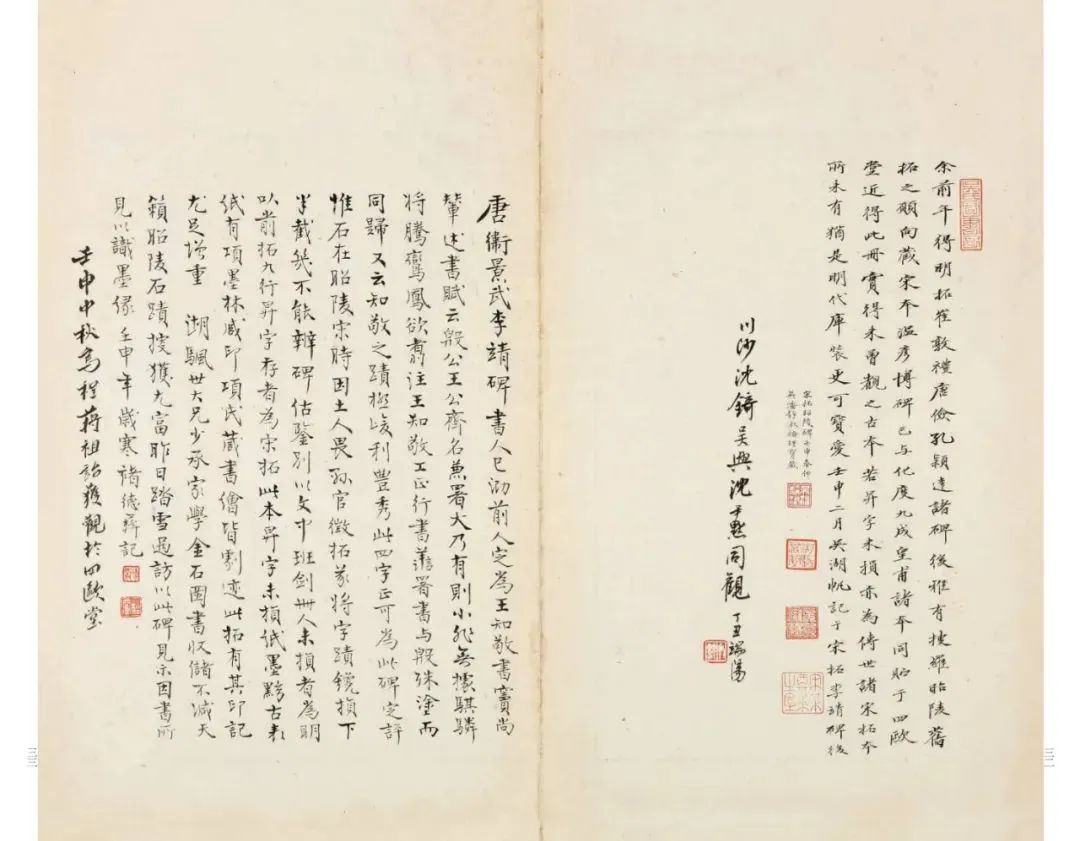 余前年得明拓崔敦禮唐儉孔穎達諸碑後雅有搜羅昭陵舊
拓之願向藏宋本溫彥博碑已與化度九成皇甫諸本同貯于四歐
堂近得此冊實得未曾觀之古本若昇字未損亦為傳世諸宋拓本
所未有猶是明代庫裝更可寶愛壬申二月吳湖帆記于宋拓李靖碑後
宋拓昭陵碑壬申春仲
吳潘靜淑梅景寶藏
川沙沈錡吳興沈尹默同觀丁丑端陽
唐衛景武李靖碑書人已泐前人定為王知敬書竇尚
輦述書賦云殷公王公齊名兼署大乃有則小非無據騏驎
將騰鸞鳳欲翥注王知敬工正行書善署書与殷殊塗而
同歸又云知敬之蹟極峻利豐秀此四字正可為此碑定評
惟石在昭陵宋時因土人畏孫官徵拓蒙將字蹟鐫損下
半截幾不能辨碑估鑒別以文中班劍卌人未損者為明
以前拓九行昇字存者為宋拓此本昇字未損紙墨黟古表
紙有項墨林藏印項氏藏書繪皆劇迹此拓有其印記
尤足增重 湖颿世大兄少承家學金石圖書收儲不減天
籟昭陵石蹟搜獲尤富昨日踏雪過訪以此碑見示因書所
見以識墨緣壬申年歲寒褚德彝記
壬申中秋烏程蔣祖詒獲觀於四歐堂
三三
三二